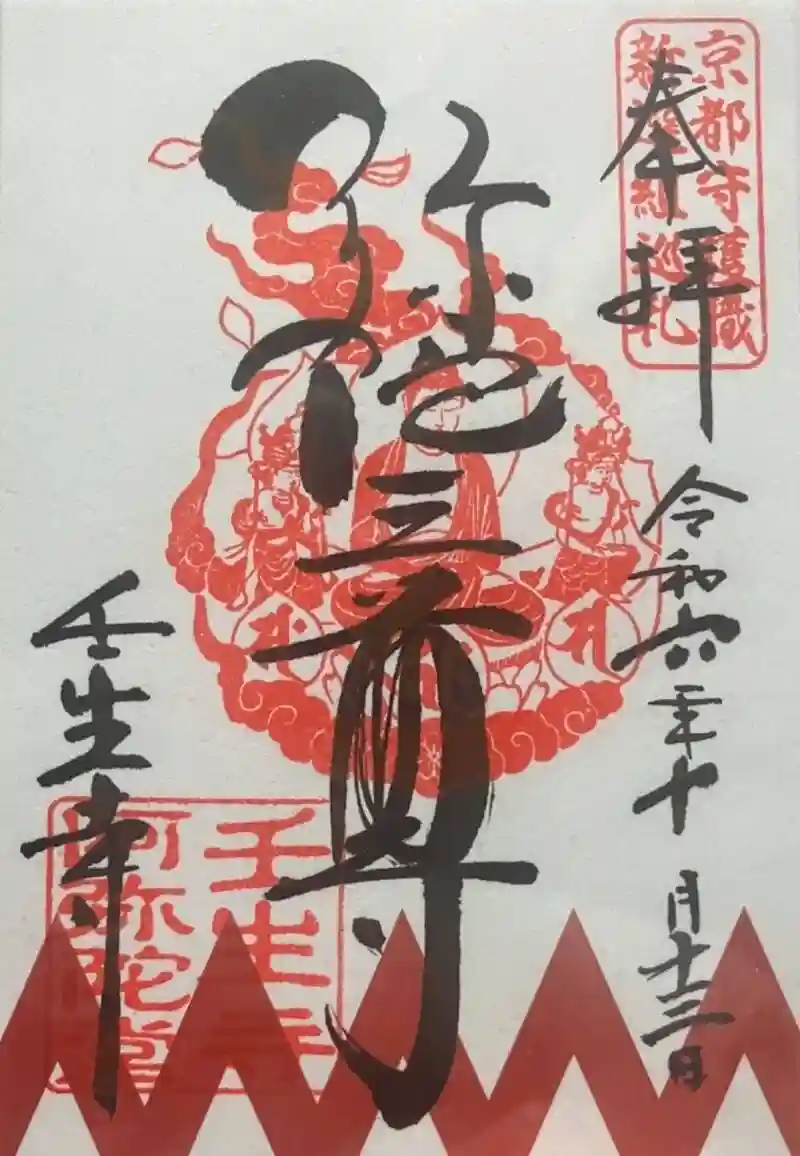 奉拝
京都守護職
新選組巡礼
令和六年十月十三日
弥陀三尊
壬生寺
壬生寺
阿弥陀堂